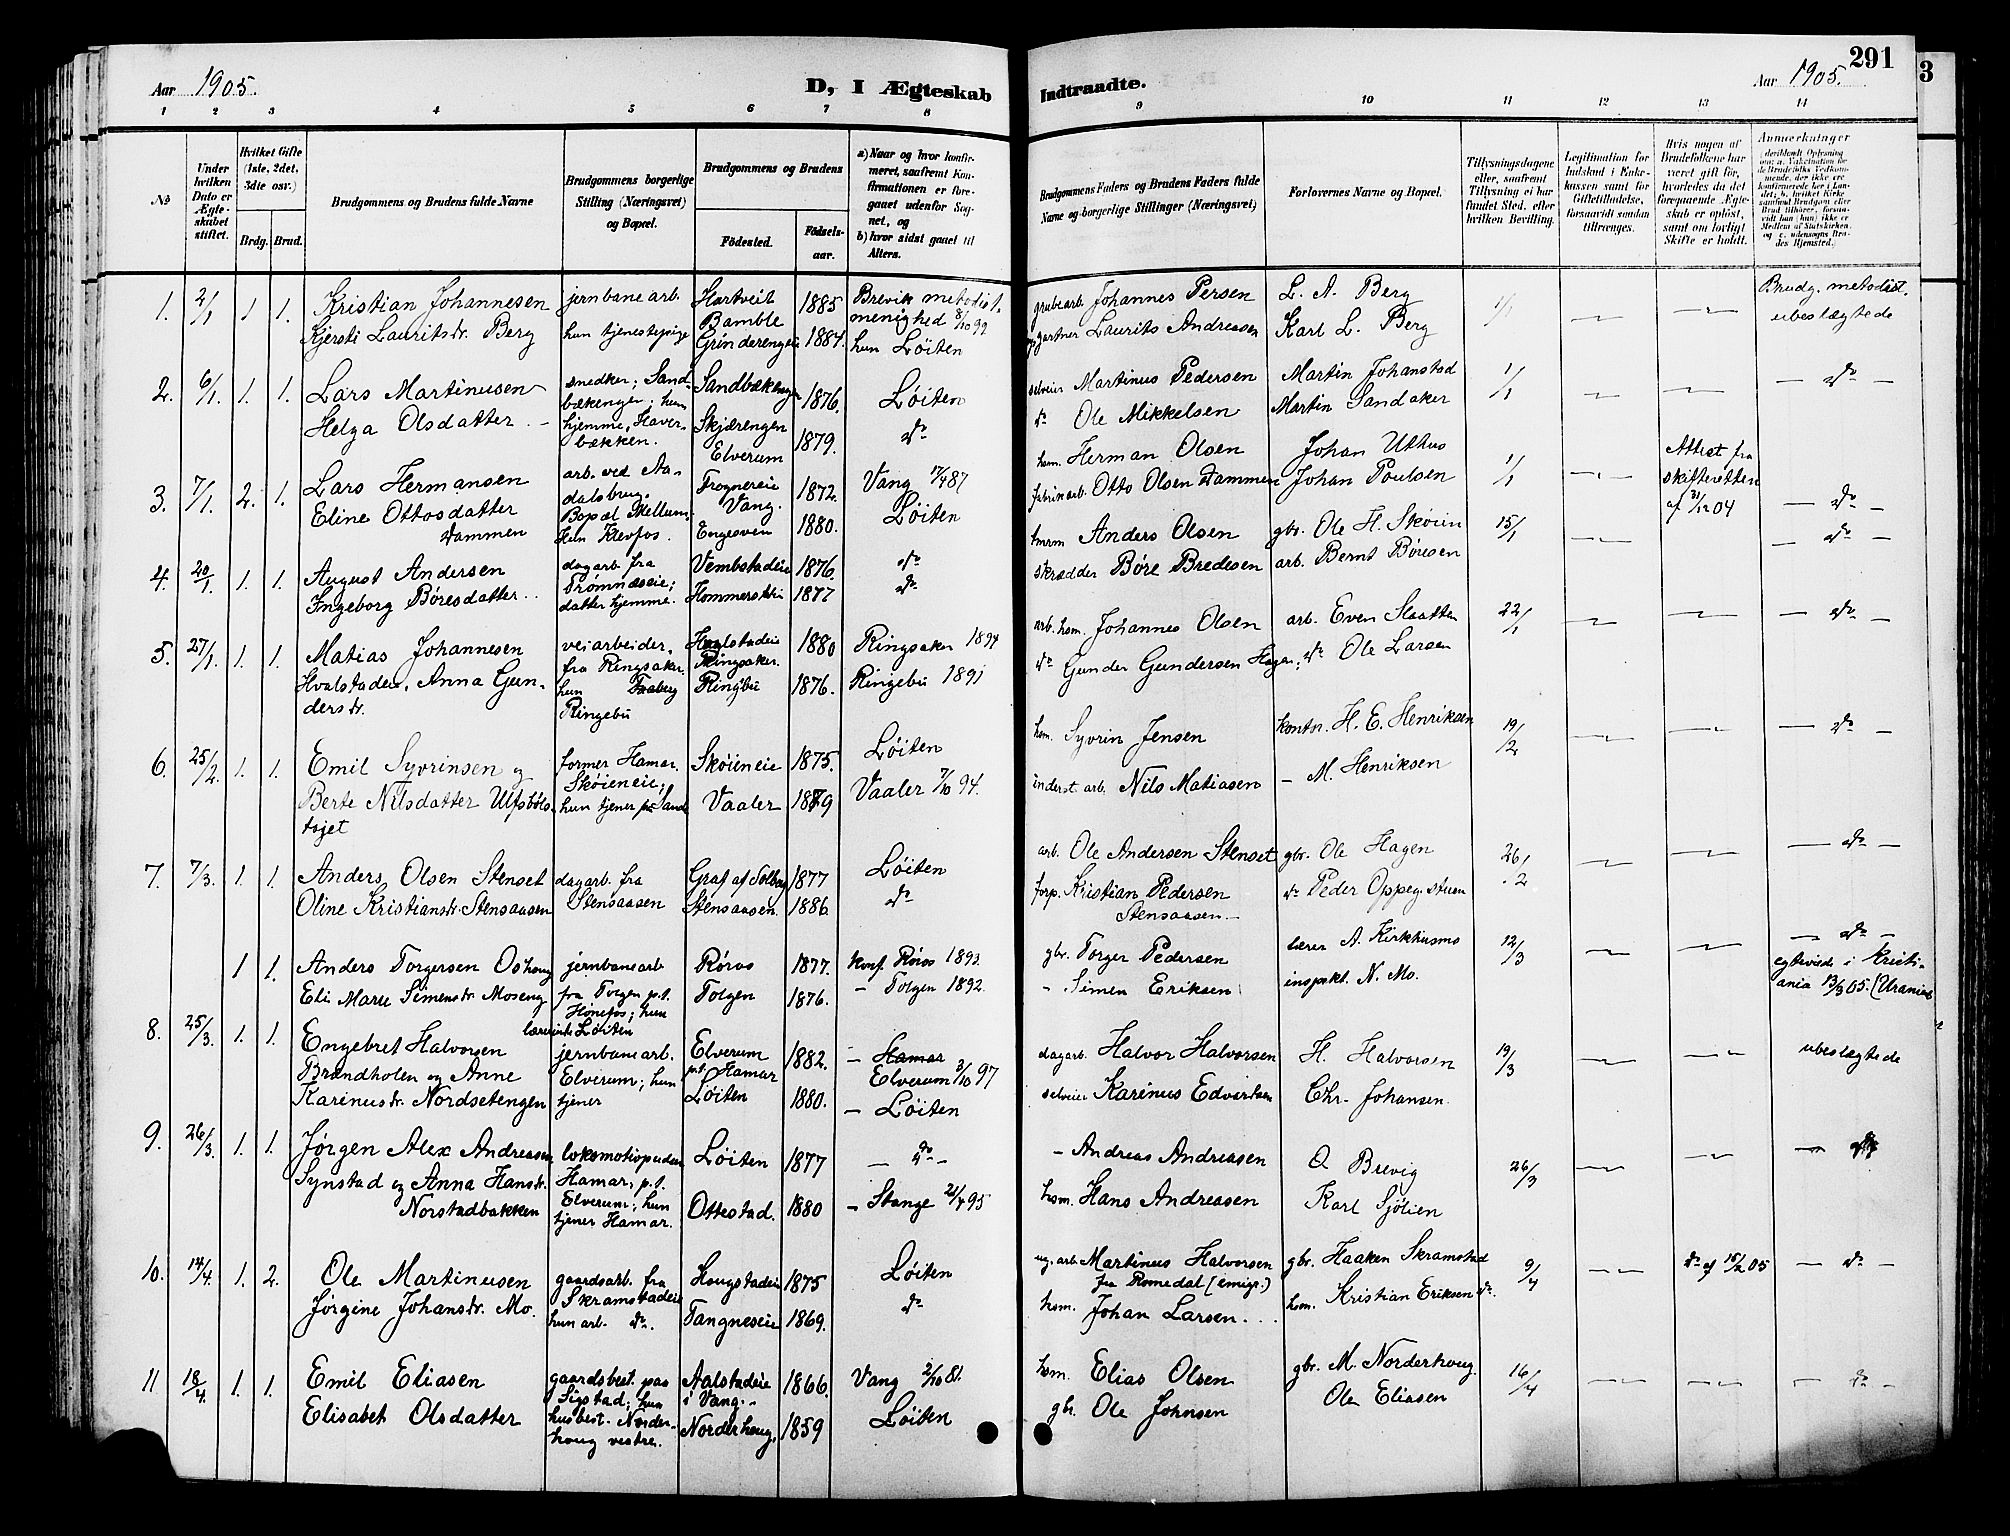 291
3
Aar 1905.
D, I Ægteskab
Indtraadte.
Aar 1905.
1 2 3 4 5 6 7 8
9 10 11 12 13 14
No
Under hvilken Dato er Ægteskabet stiftet.
Hvilket Gifte (1ste, 2det, 3die osv.)
Brdg. Brud.
Brudgommens og Brudens fulde Navne
Brudgommens borgerlige Stilling (Næringsvei) og Bopæl.
Brudgommens og Brudens
Fødested.
Fødsels-aar.
a) Naar og hvor konfirmeret, saafremt Konfirmationen er foregaaet udenfor Sognet, og
b) hvor sidst gaaet til Alters.
Brudgommens Faders og Brudens Faders fulde Navne og borgerlige Stillinger (Næringsvei)
Forlovernes Navne og Bopæl.
Tillysningsdagene eller, saafremt Tillysning ei har fundet Sted, efter hvilken Bevilling.
Legitimation for Indskud i Enkekassen samt for Giftetilladelse, forsaavidt saadan tiltrænges.
Hvis nogen af Brudefolkene har været gift før, hvorledes da det foregaaende Ægteskab er opløst, samt om lovligt Skifte er holdt.
Anmærkninger
1. 2/1 1 1. Kristian Johannesen jernbanearb. Hartveit Bamble 1885 Brevik metodist. menighed 8/10 99
Kjersti Lauritsdr. Berg hun tjenestepige Grinderengen 1884. hun Løiten
grubearb. Johannes Persen L. A. Berg 1/1 Brudg. metodist.
gartner Laurits Andreasen Karl L. Berg ubeslægtede
2. 6/1. 1. 1. Lars Martinusen snedker; Sandbækengen; Sandbækengen 1876. Løiten
Helga Olsdatter hun hjemme, Haverbækken. Skjærengen Elverum 1879. do
selveier Martinus Pedersen Martin Johanstad 1/1 do
do Ole Mikkelsen Martin Sandaker
3. 7/1. 2. 1. Lars Hermansen arb. ved Aadalsbrug. Frognereie Vang. 1872. Vang 17/4 87
Eline Ottosdatter Dammen Bopæl Mellum. Hun Klevfos. Engesveen 1880. Løiten
hsm. Herman Olsen Johan Uthus 1/1 Attest fra skifteretten af 31/12 04 do
fabrikarb. Otto Olsen Dammen Johan Poulsen
4. 20/1. 1. 1. August Andersen dagarb fra Trømnæseie; Vembstadeie 1876. do
Ingeborg Børesdatter datter hjemme. Hommerstei 1877 do
tmrm Anders Olsen gbr. Ole H. Skøien 15/1 do
skrædder Børe Bredesen arb. Bernt Børesen
5. 27/1. 1. 1. Matias Johannesen veiarbeider, fra Ringsaker. Hvalstadeie Ringsaker. 1880 Ringsaker 1894
Hvalstadeie, Anna Gundersdr. hun Faaberg Ringebu Ringebu 1876. Ringebu 1891
arb. hsm. Johannes Olsen arb. Even Slaatten 22/1 do
do Gunder Gundersen Hagen, do Ole Larsen
6. 25/2. 1. 1. Emil Syvrinsen og former Hamar. Skøieneie; Skøieneie 1875. Løiten
Berte Nilsdatter Ulfsbølstøjet hun tjener paa Sande Vaaler 1879 Vaaler 7/10 94.
hsm. Syvrin Jensen kontor. H. E. Henriksen 19/2 do
inderst arb. Nils Matiasen – M. Henriksen
7. 7/3. 1. 1. Anders Olsen Stenset dagarb. fra Stensaasen Graf af Solberg 1877 Løiten
Oline Kristiansdr. Stensaasen Stensaasen. 1886 do
arb. Ole Andersen Stenset gbr. Ole Hagen 26/2 do
forp. Kristian Pedersen Stensaasen do Peder Oppegstuen
1 1. Anders Torgersen Oshoug jernbanearb fra Tolgen p.t. Hønefos; Røros 1877. Konf. Røros 1892.
Eli Marie Simensdr. Moseng hun lærerinde Løiten Tolgen 1876. – Tolgen 1892.
gbr. Torger Pedersen lærer A. Kirkhusmo 12/3 do
– Simen Eriksen inspekt. N. Mo. egteviede i Kristiania 13/3 05.
8. 25/3. 1. 1. Engebret Halvorsen jernbanearb. Elverum; Elverum p.t. Hamar 1882. – Hamar Elverum 3/10 97
Brændholen og Anne Karinusdr. Nordsetengen hun tjener Løiten 1880. – Løiten
dagarb. Halvor Halvorsen H. Halvorsen 19/3 ubeslægtede
selveier Karinus Edvartsen Chr. Johansen.
9. 26/3. 1. 1. Jørgen Alex Andreasen lokomotivpudser Hamar, p.t. Løiten 1877 – do –
Synstad og Anna Hansdr. Norstadbakken Elverum; hun tjener Hamar. Ottestad. 1880 – Stange 21/4 95
– Andreas Andreasen O Brevig 26/3 do
hsm. Hans Andreasen Karl Sjølien
10. 14/4. 1. 2. Ole Martinusen gaardsarb. fra Skramstadeie Hougstadeie 1875 Løiten
Jørgine Johansdr. Mo. hun arb. do. Tangneseie 1869. do
ug. arb. Martinus Halvorsen fra Romedal (emigr.) gbr. Haaken Skramstad 9/4 do af 15/2 05 do
hsm. Johan Larsen hsm. Kristian Eriksen do.
11 18/4. 1. 1. Emil Eliasen gaardsbest. paa Sigstad; Aalstadeie i Vang. 1866. Vang 2/10 81.
Elisabet Olsdatter hun husbest. Norderhoug vestre. Norderhoug. 1859 Løiten
hsm. Elias Olsen gbr. M. Norderhoug. 16/4 do
gbr. Ole Johnsen Ole Eliasen